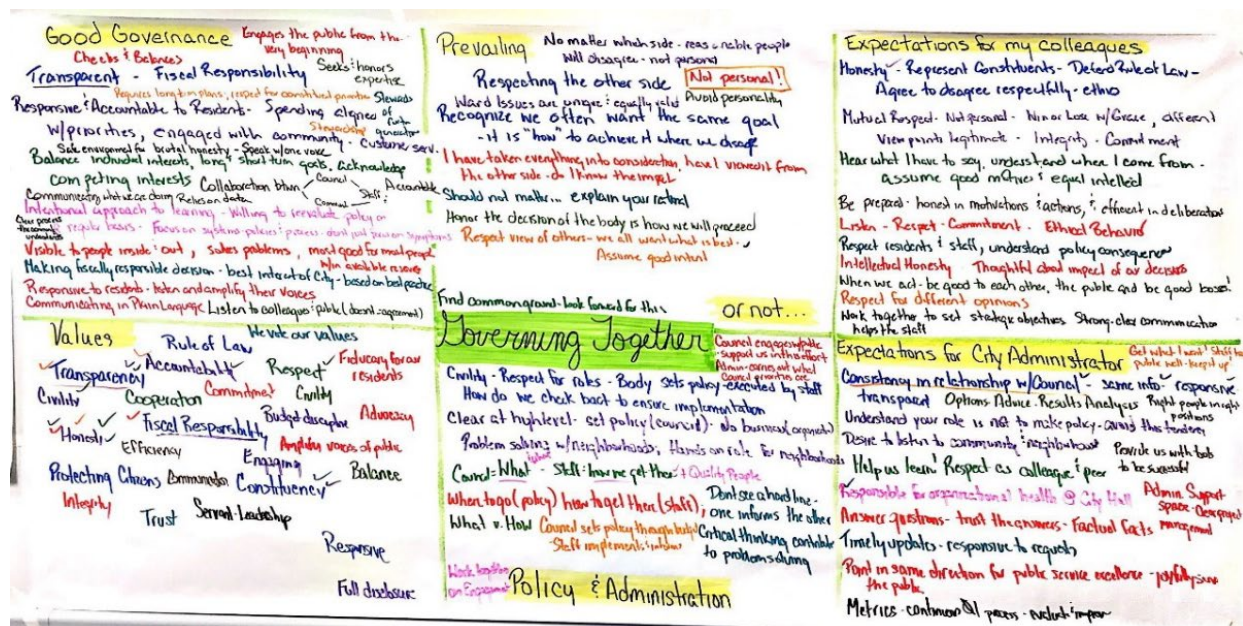 Good Governance
Engages the public from the very beginning
Checks & Balances
Transparent - Fiscal Responsibility
Seeks & honors expertise
Requires long term plans, respect for constituted priorities
Stewards of future generations
Responsive & Accountable to Residents - Spending aligned
Stewardship
w/priorities, engaged with community - Custome serv.
Safe environment for brutal honesty - Speak w/one voice
Balance individual interests, long & short term goals, acknowledge
competing interests
Collaboration btwn
Council
Staff
Commun
Accountable
Communicating what we are doing Relies on data
Intentional approach to learning - Willing to reevaluate policy on
regular basis - Focus on systems-policies & process - don't just
Clear process
Visible to people inside & out, solves problems, most good for most people
w/in available resources
Making fiscally responsible decision - best interest of City - based on best practice
Responsive to residents - listen and amplify their voices
Communicating in Plain Language
Listen to colleagues & public (doesn't = agreement)
Values
We vote our values
Rule of Law
Transparency
Accountability
Respect
Fiduciary for our residents
Civility
Cooperation
Commitment
Civility
Honesty
Fiscal Responsibility
Budget discipline
Advocacy
Efficiency
Engaging
Amplify voices of public
Protecting Citizens
Communication
Constituency
Balance
Integrity
Trust
Servant-Leadership
Responsive
Full disclosure
Prevailing
No matter which side - reasonable people
will disagree - not personal
Respecting the other side
Not personal!
Ward Issues are unique & equally valid
Avoid personality
Recognize we often want the same goal
- it is "how" to achieve it where we disagree
I have taken everything into consideration, have I viewed it from
the other side - do I know the impact
Should not matter... explain your
Honor the decision of the body is how we will proceed
Respect view of others - we all want what is best -
Assume good intent
Find common ground - look forward for this
or not...
Governing Together
Council engages w/public
- support us in this effort
Admin - carries out what
Council priorities are
Civility - Respect for roles - Body sets policy executed by staff
How do we check back to ensure implementation
Clear at high level - set policy (council) - No business
Problem solving w/neighborhoods, Hands on role for neighborhoods
Council - What - Staff: how we get there + Quality People
When to go (policy) how to get there (staff);
Don't see a hard line -
one informs the other
What v. How
Council sets policy through budget
- Staff implements & informs
Critical thinking contribute
to problem solving
Work together
on Engagement
Policy & Administration
Expectations for my colleagues
Honesty - Represent Constituents - Defend Rule of Law -
Agree to disagree respectfully - ethics
Mutual Respect - Not personal - Win or Lose w/Grace, different
View points legitimate Integrity - Commitment
Hear what I have to say, understand where I come from -
assume good motives & equal intellect
Be prepared - honest in motivations & actions, & efficient in deliberation
Listen - Respect - Commitment - Ethical Behavior
Respect residents & staff, understand policy consequences
Intellectual Honesty - Thoughtful about impact of our decisions
When we act - be good to each other, the public and be good bosses!
Respect for different opinions
Work together to set strategic objectives Strong-clear communication
helps the staff
Expectations for City Administrator
Get what I want! Staff to
public well-keep it up
Consistency in relationship w/Council - same info - responsive
transparent Options - Advice - Results Analysis
Right people in right positions
Understand your role is not to make policy - avoid this tendency
Desire to listen to community & neighborhood
Provide us with tools
to be successful
Help us learn & Respect as colleague & peer
Responsible for organizational health @ City Hall
Admin. Support
space -
management
Answer questions - trust the answers - Factual facts
Timely updates - responsive to requests
Point in same direction for public service excellence - joyfully serve
the public.
Metrics - continual process - evaluate & improve